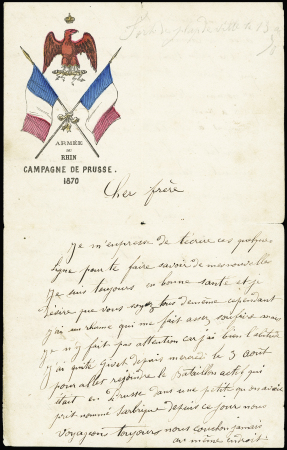 ARMÉE
DU
RHIN
CAMPAGNE DE PRUSSE.
1870
Cher frère
je m'empresse de técrire ces quelque
ligne pour te faire savoir de mes nouvelle
je suis toujours en bonne santé et je
désire que vous soyez tous de même cependant
j'ai un rhume qui me fait assez souffrire mais
je n'y fait pas attention car j'ai bien l'abitude
j'ai quité Giset depuis mercredi le 3 août
pour aller rejoindre le Bataillon actif qui
était en Prusse dans une petit qu'on avoir
prit nommé Sarbrique depuis ce jour nous
voyageon toujours nous couchon jamais
au même endroit